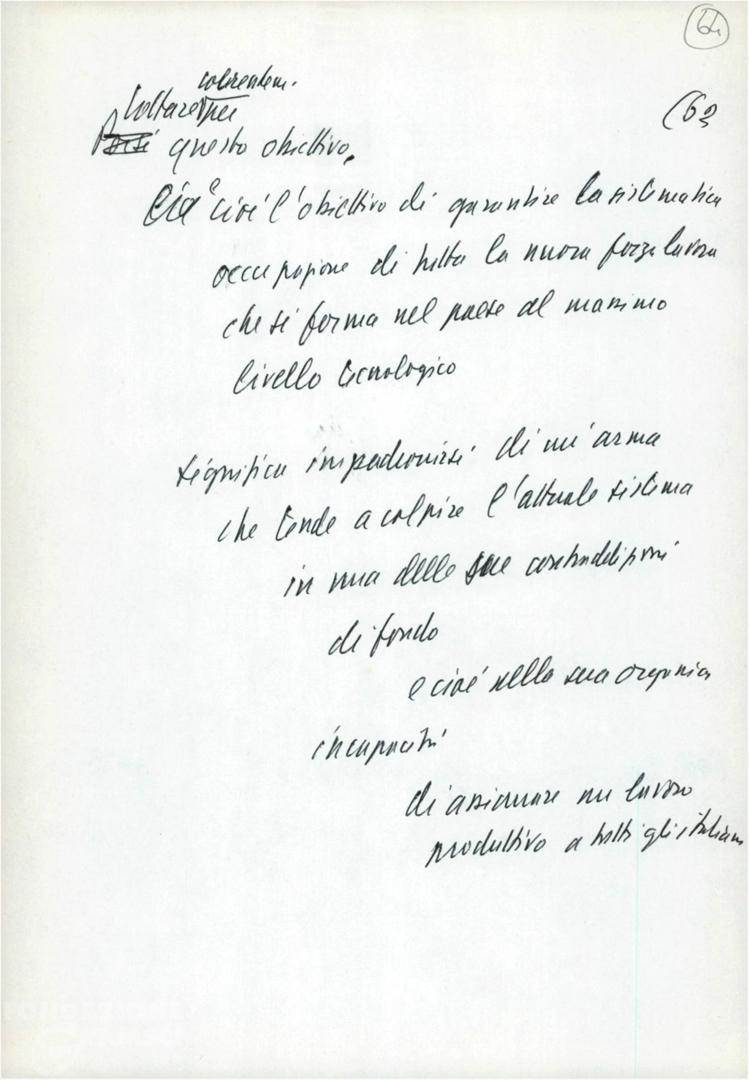 64
(63
coerentem.
Lottare per
questo obiettivo,
e cioè l'obiettivo di garantire la sistematica
occupazione di tutta la nuova forza lavoro
che si forma nel paese al massimo
livello tecnologico
significa impadronirsi di un'arma
che tende a colpire l'attuale sistema
in una delle sue contraddizioni
di fondo
e cioè nella sua organica
incapacità
di assicurare un lavoro
produttivo a tutti gli italiani